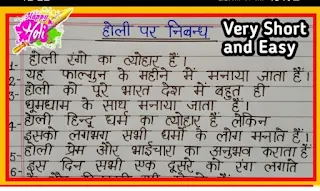 Happy
Holi
होली पर निबन्ध
Very Short
and Easy
1- होली रंगों का त्योहार हैं।
2- यह फाल्गुन के महीने में मनाया जाता हैं।
3- होली को पूरे भारत देश में बहुत ही
धूमधाम के साथ मनाया जाता हैं।
होली हिन्दू धर्म का त्योहार हैं लेकिन
इसको लगभग सभी धर्मो के लोग मनाते हैं।
5- होली प्रेम और भाईचारा का अनुभव कराता हैं
6- इस दिन सभी एक दूसरे को रंग लगाते